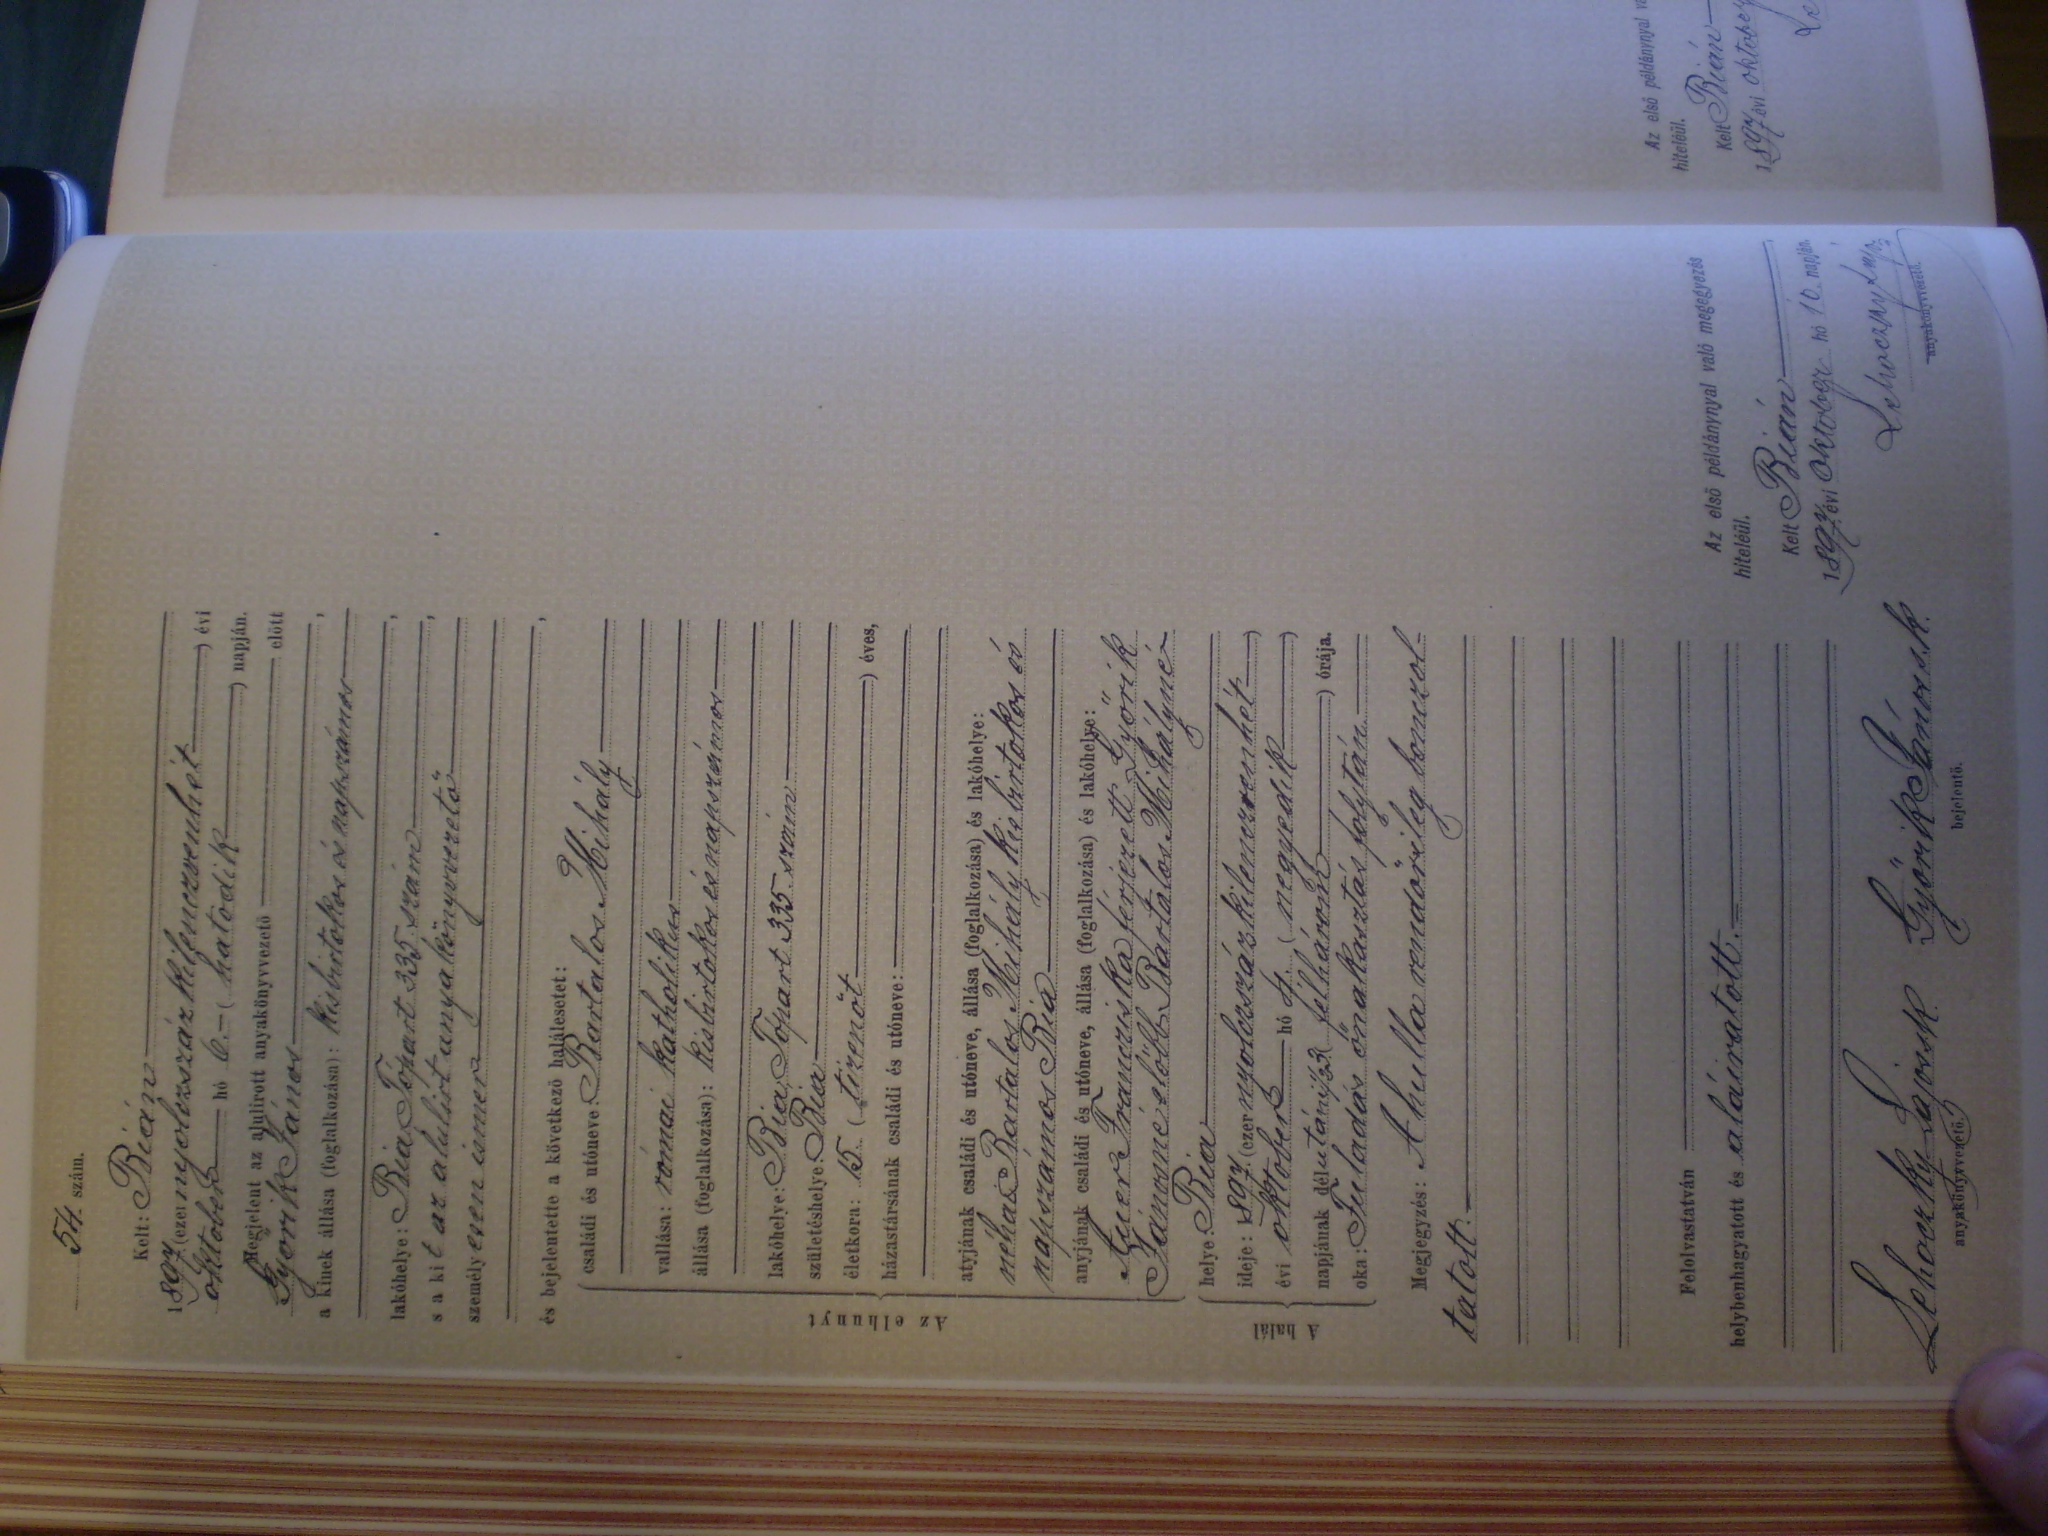 54. szám.
Kelt: Bián
1897. (ezernyolczszázkilenczvenhét) évi
október hó 6. (hatodik) napján.
Megjelent az alulirott anyakönyvvezető előtt
Györik János
a kinek állása (foglalkozása): kisbirtokos és napszámos,
lakóhelye: Bia Tópart 335 szám,
s a kit az alulirt anyakönyvvezető,
személyesen ismer
és bejelentette a következő halálesetet:
Az elhunyt
családi és utóneve: Bartalos Mihály
vallása: római katholikus
állása (foglalkozása): kisbirtokos és napszámos
lakóhelye: Bia, Tópart 335. szám
születéshelye: Bia
életkora: 15. (tizenöt) éves,
házastársának családi és utóneve:
atyjának családi és utóneve, állása (foglalkozása) és lakóhelye:
néhai Bartalos Mihály kisbirtokos és
napszámos Bia
anyjának családi és utóneve, állása (foglalkozása) és lakóhelye:
Auer Francziska férjezett Györik
Jánosné előbb Bartalos Mihályné
A halál
helye: Bia
ideje: 1897. (ezernyolczszázkilenczvenhét)
évi október hó 4. (negyedik)
napjának délután ½3 (félhárom) órája.
oka: Fuladás önakasztás folytán.
Megjegyzés: A hulla rendőrileg bonczol-
tatott.
Felolvastatván
helybenhagyatott és aláiratott.
Lehoczky Lajos s.k.
anyakönyvvezető.
Györik János s.k.
bejelentő.
Az első példánynyal való megegyezés
hiteléül.
Kelt Bián
1897. évi október hó 10. napján.
Lehoczky Lajos
anyakönyvvezető.
Az első példánynyal
hiteléül.
Kelt Bián
1897 évi október